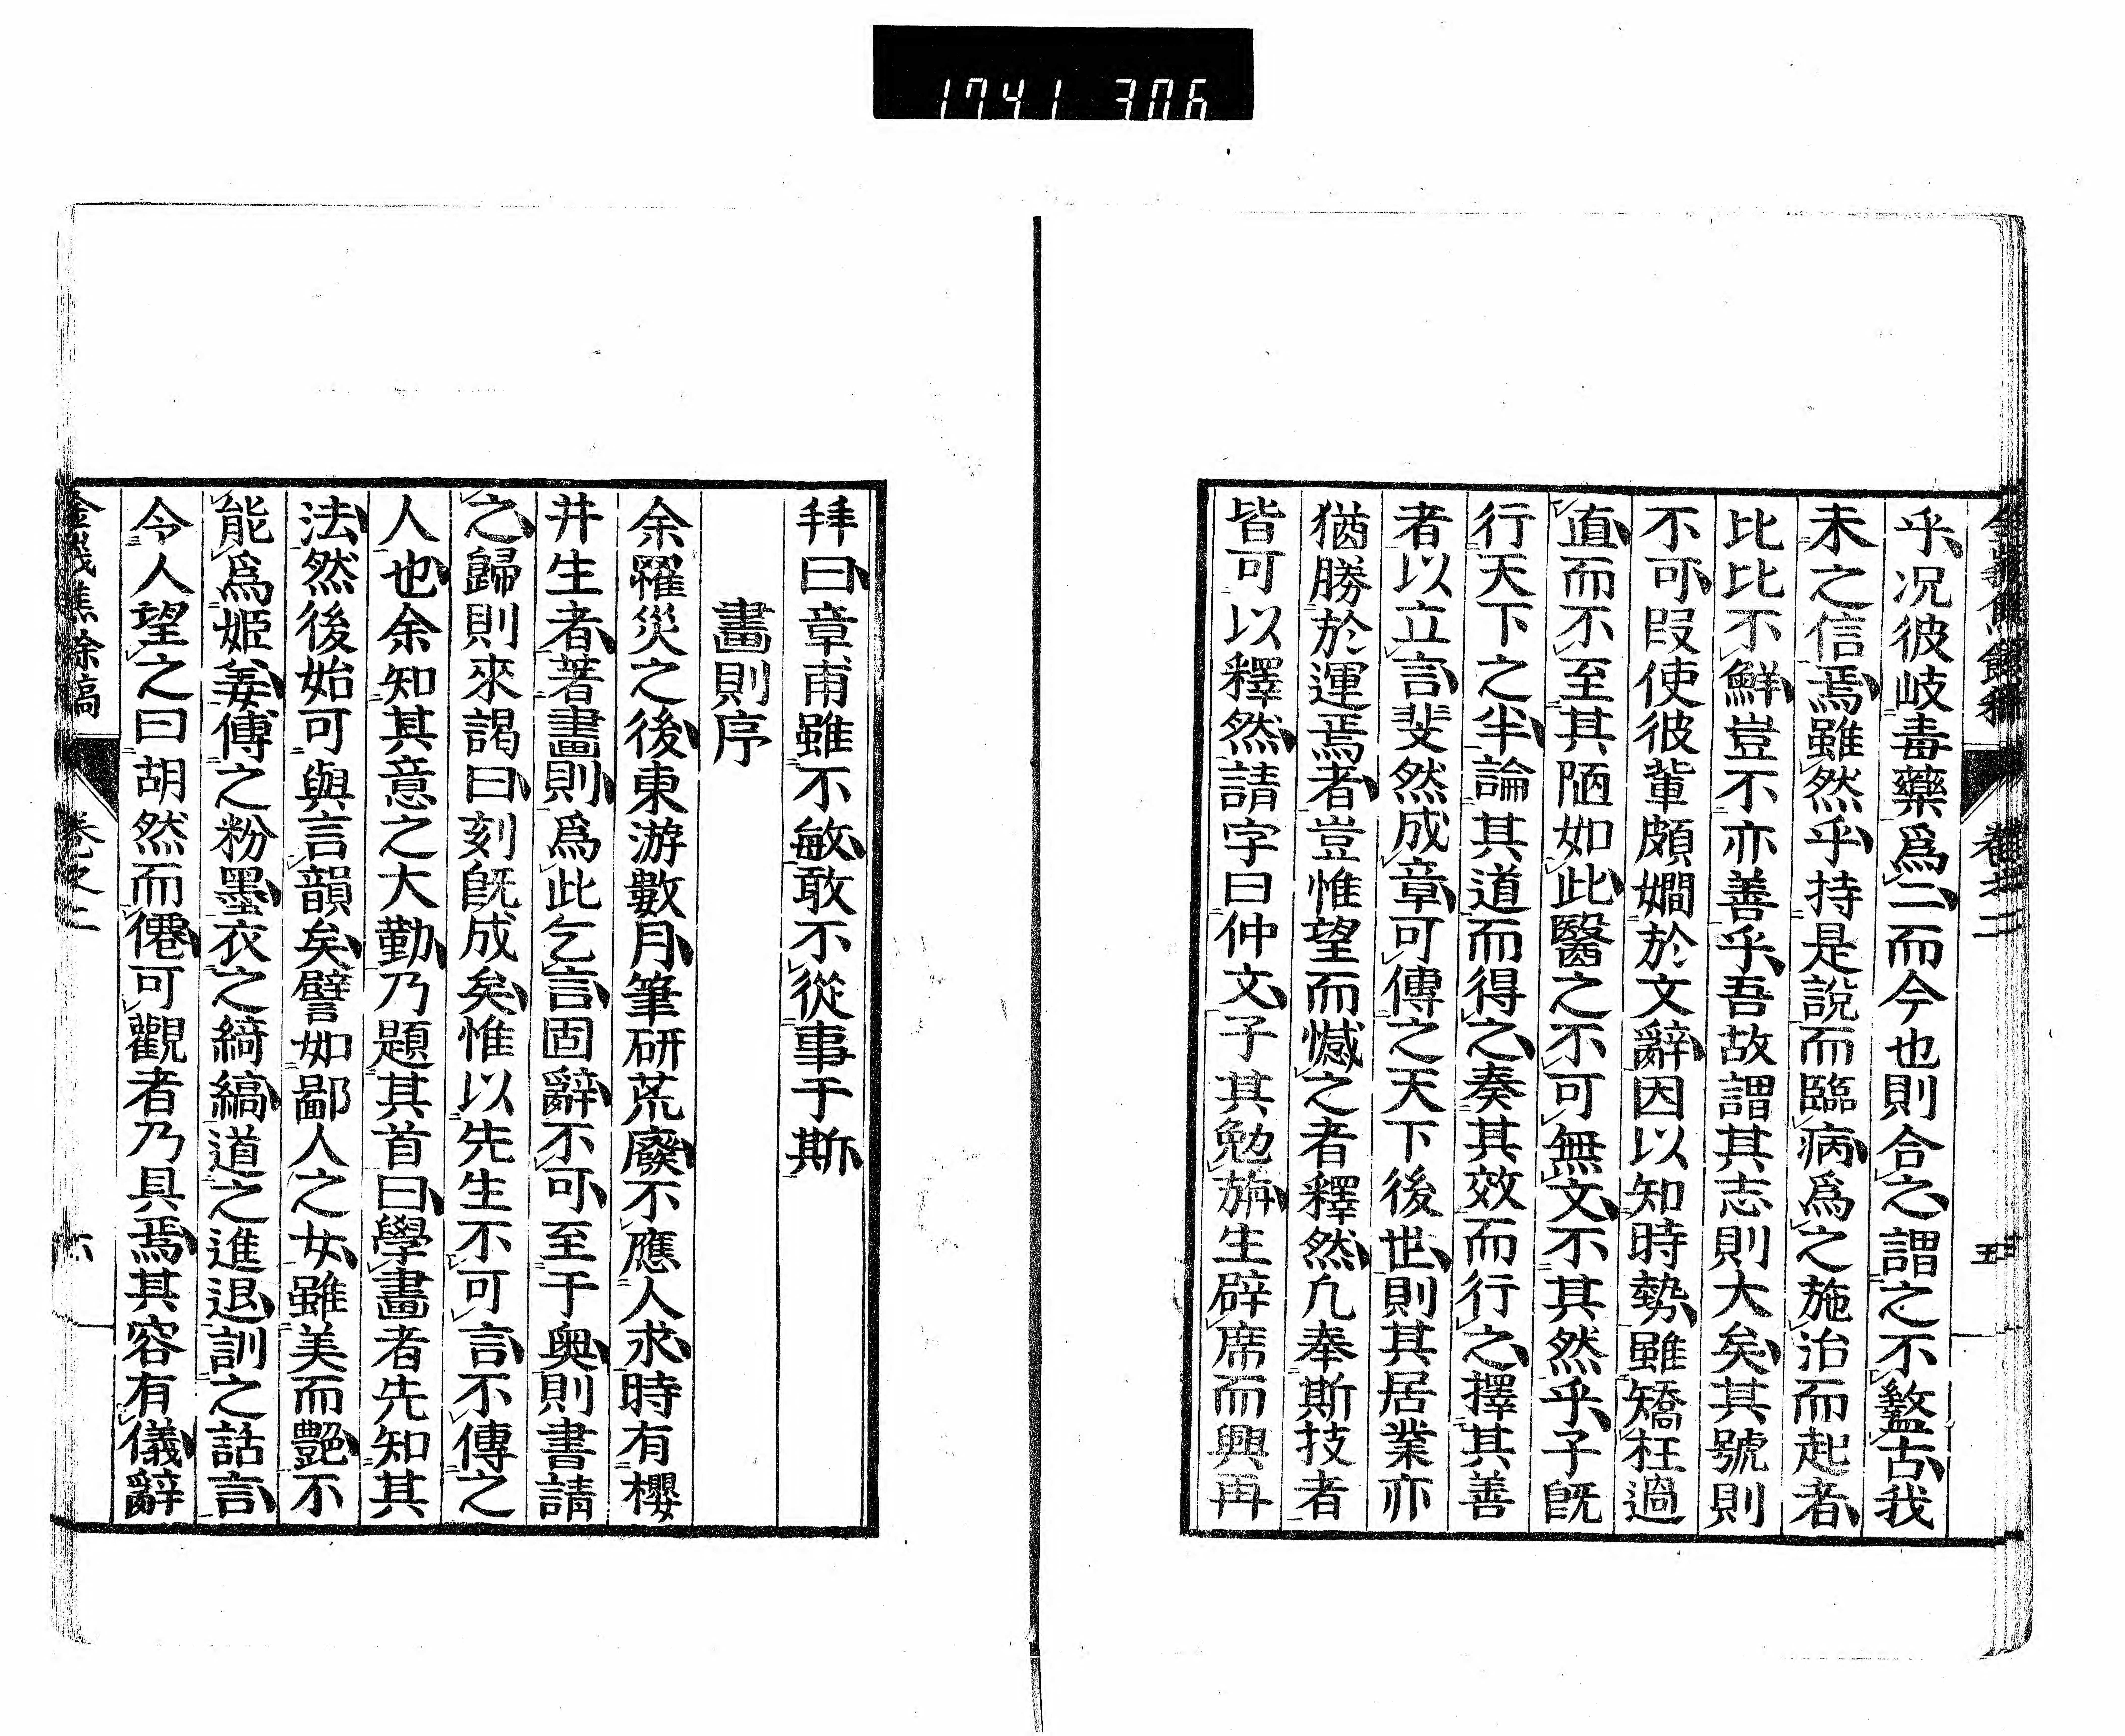 1741 306
乎、况彼岐毒藥爲二、而今也則合之、謂之不盭古、我
未之信焉、雖然乎、持是說而臨病、爲之施治而起者、
比比不鮮、豈不亦善乎、吾故謂其志則大矣、其號則
不可、叚使彼輩頗嫺於文辭、因以知時勢、雖矯枉過
直、而不至其陋如此、醫之不可無文、不其然乎、子旣
行天下之半、論其道而得之、奏其效而行之、擇其善
者以立言、斐然成章、可傳之天下後世、則其居業亦
猶勝於運焉者、豈惟望而憾之者釋然、凢奉斯技者
皆可以釋然、請字曰仲文、子其勉旃、生辟席而興再
卷之二
五
拜曰、章甫雖不敏、敢不從事于斯、
畫則序
余罹災之後、東游數月、筆硏荒廢、不應人求、時有櫻
井生者、著畫則、爲此乞言、固辭不可、至于輿則書請
之、歸則來謁曰、刻旣成矣、惟以先生不可言、不傳之
人也、余知其意之大勤、乃題其首曰、學畫者先知其
法、然後始可與言韻矣、譬如鄙人之女、雖美而艷、不
能爲姬姜、傅之粉墨、衣之綺縞、道之進退、訓之話言、
令人望之曰胡然而僊、可觀者乃具焉、其容有儀、辭
卷之二
六